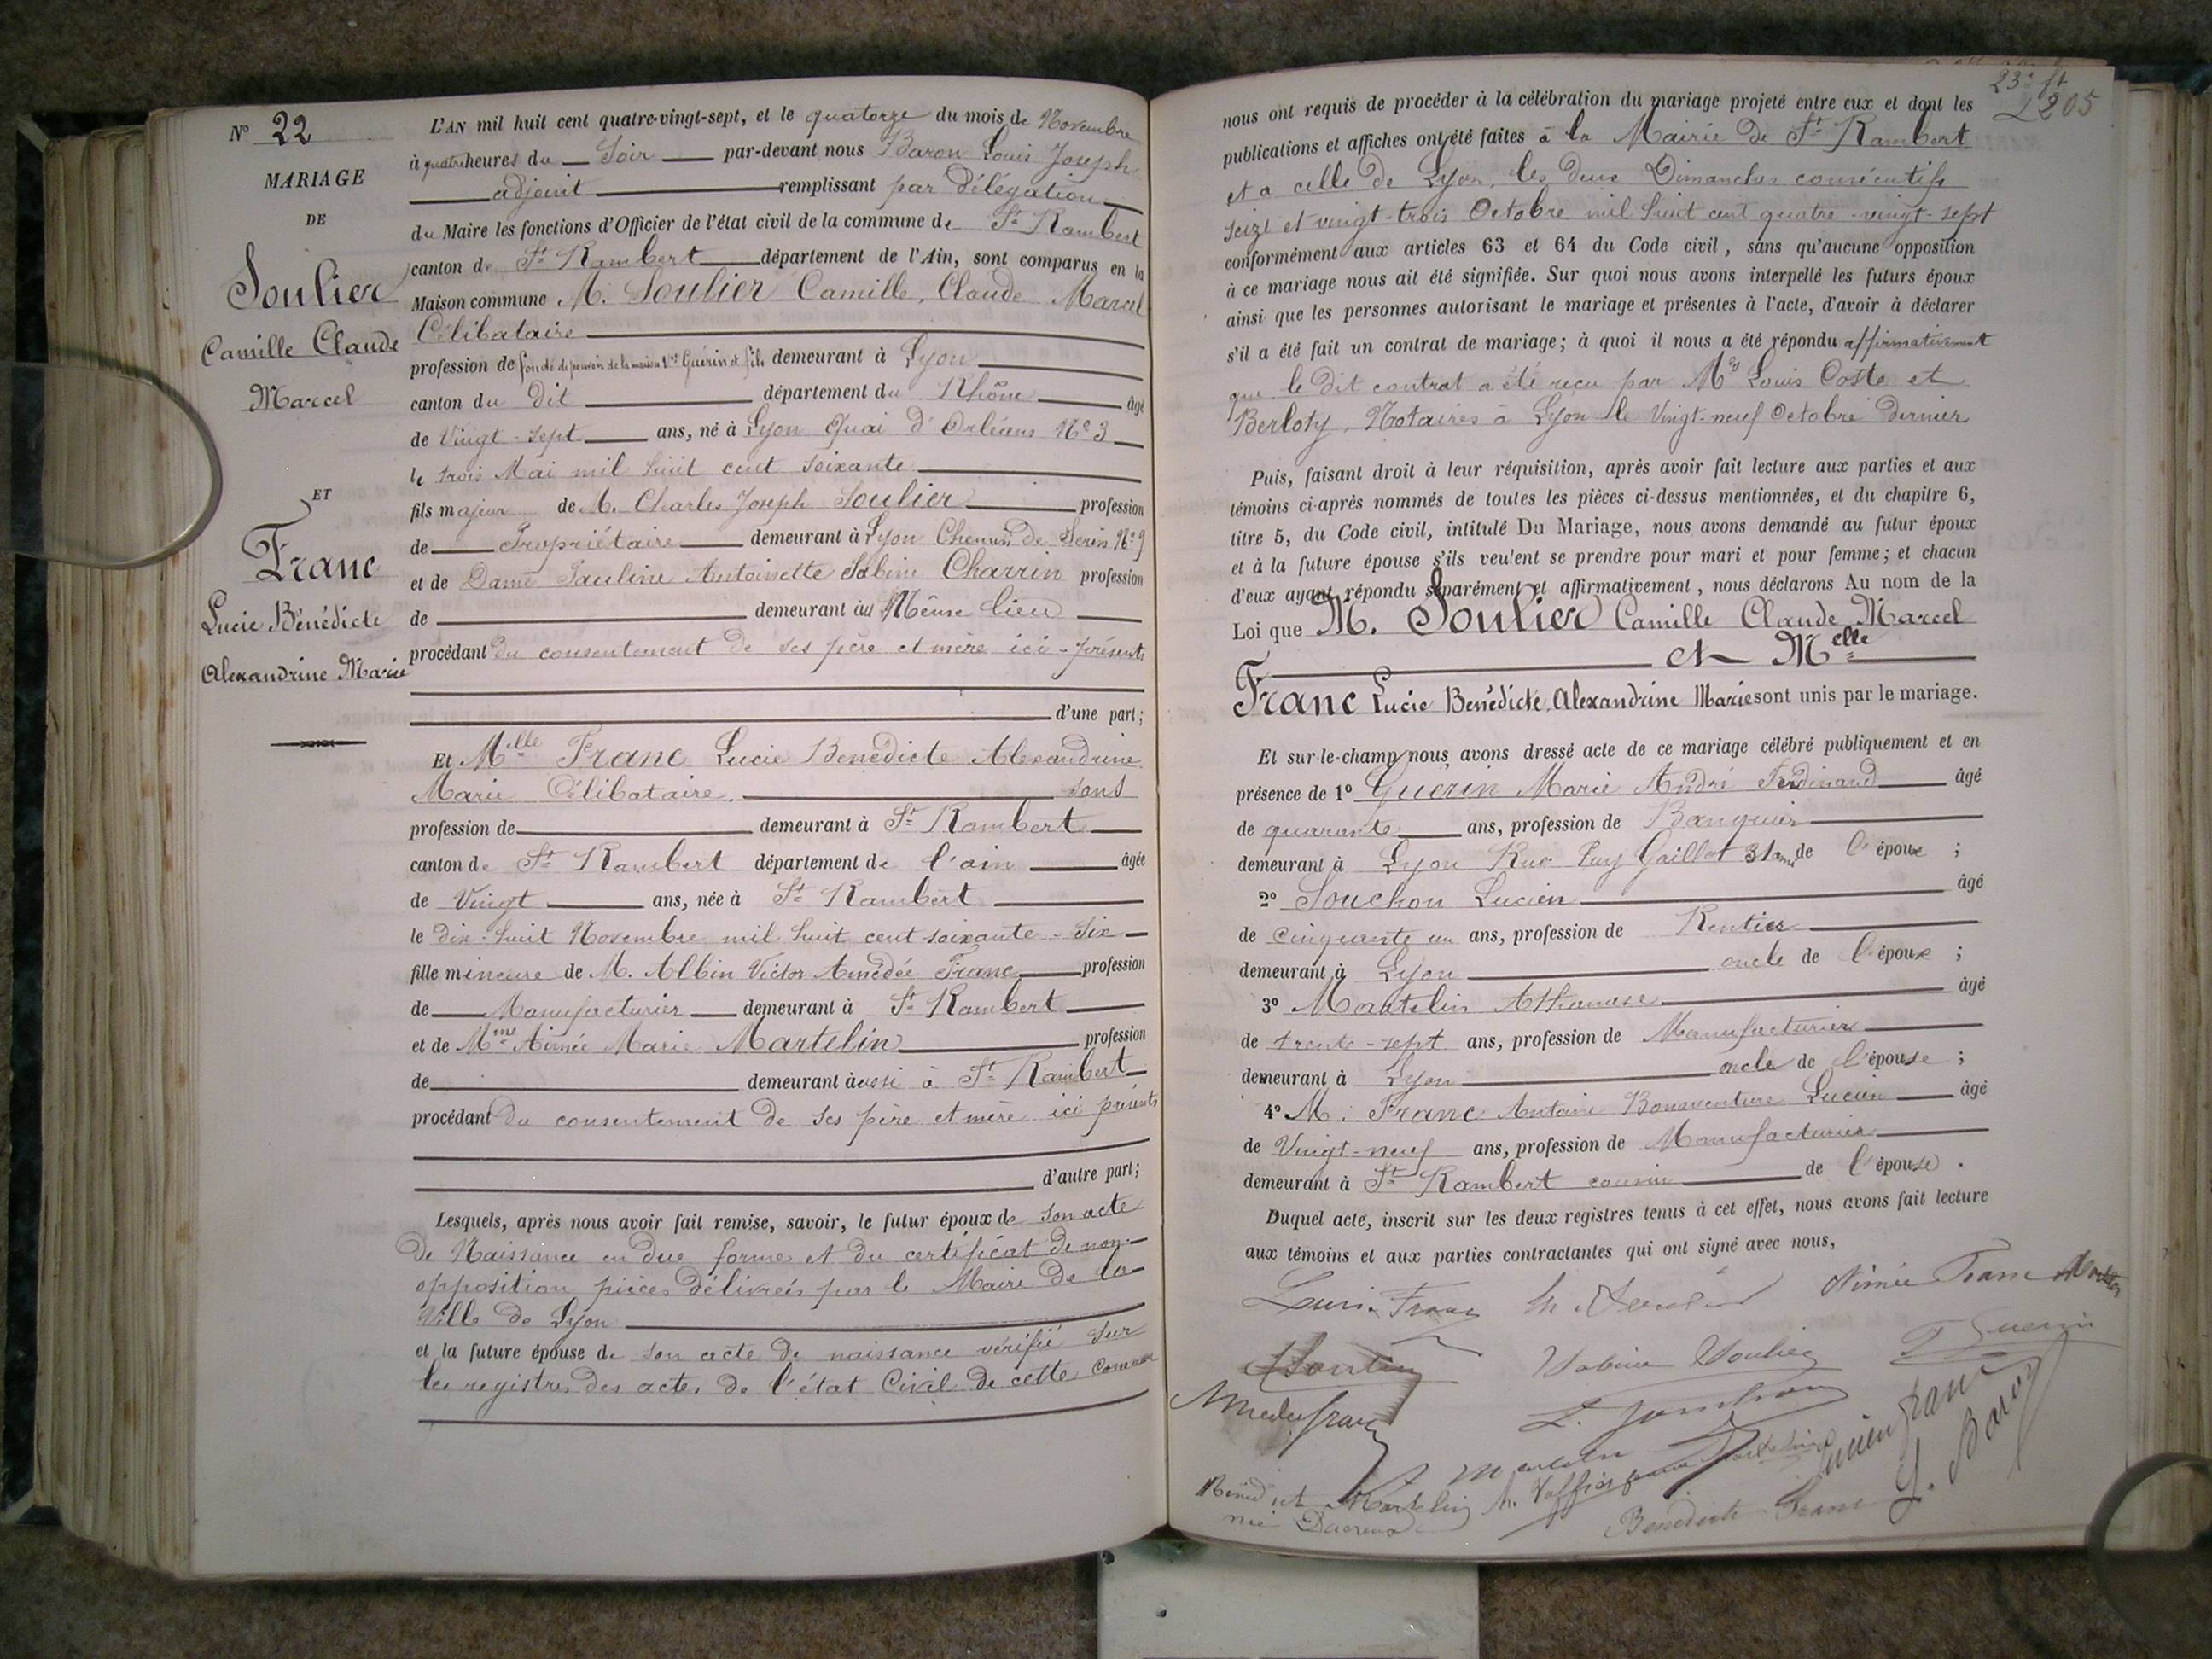 N° 22
MARIAGE
DE
Soulier
Camille Claude
Marcel
ET
Franc
Lucie Bénédicte
Alexandrine Marie
L'AN mil huit cent quatre-vingt-sept, et le quatorze du mois de Novembre
à quatre heures du Soir par-devant nous Baron Louis Joseph
adjoint remplissant par délégation
du Maire les fonctions d'Officier de l'état civil de la commune de St Rambert
canton de St Rambert département de l'Ain, sont comparus en la
Maison commune M. Soulier Camille, Claude Marcel
Célibataire
profession de fondé de pouvoirs de la maison Vve Guérin et fils demeurant à Lyon
canton du dit département du Rhône âgé
de Vingt-sept ans, né à Lyon Quai d'Orléans N° 3
le trois Mai mil huit cent soixante
fils majeur de M. Charles Joseph Soulier profession
de Propriétaire demeurant à Lyon Chemin de Serin N° 9
et de Dame Pauline Antoinette Sabine Charrin profession
de demeurant au Même lieu
procédant du consentement de ses père et mère ici-présents
d'une part;
Et Melle Franc Lucie Bénédicte Alexandrine
Marie Célibataire. sans
profession de demeurant à St Rambert
canton de St Rambert département de l'ain âgée
de Vingt ans, née à St Rambert
le dix-huit Novembre mil huit cent soixante-six
fille mineure de M. Albin Victor Amédée Franc profession
de Manufacturier demeurant à St Rambert
et de Mme Aimée Marie Martelin profession
de demeurant aussi à St Rambert
procédant du consentement de ses père et mère ici présents
d'autre part;
Lesquels, après nous avoir fait remise, savoir, le futur époux de son acte
de Naissance en due forme et du certificat de non-
opposition pièces délivrées par le Maire de la
Ville de Lyon
et la future épouse de son acte de naissance vérifié sur
les registres des actes de l'état Civil de cette commune
23e ft
205
nous ont requis de procéder à la célébration du mariage projeté entre eux et dont les
publications et affiches ont été faites à la Mairie de St Rambert
et a celle de Lyon, les deux Dimanches consécutifs
seize et vingt-trois Octobre mil huit cent quatre-vingt-sept
conformément aux articles 63 et 64 du Code civil, sans qu'aucune opposition
à ce mariage nous ait été signifiée. Sur quoi nous avons interpellé les futurs époux
ainsi que les personnes autorisant le mariage et présentes à l'acte, d'avoir à déclarer
s'il a été fait un contrat de mariage; à quoi il nous a été répondu affirmativement
que le dit contrat a été reçu par Mes Louis Coste et
Berloty, Notaires à Lyon le Vingt-neuf Octobre dernier
Puis, faisant droit à leur réquisition, après avoir fait lecture aux parties et aux
témoins ci-après nommés de toutes les pièces ci-dessus mentionnées, et du chapitre 6,
titre 5, du Code civil, intitulé Du Mariage, nous avons demandé au futur époux
et à la future épouse s'ils veulent se prendre pour mari et pour femme; et chacun
d'eux ayant répondu séparément et affirmativement, nous déclarons Au nom de la
Loi que M. Soulier Camille Claude Marcel
et Melle
Franc Lucie Bénédicte Alexandrine Marie sont unis par le mariage.
Et sur-le-champ nous avons dressé acte de ce mariage célébré publiquement et en
présence de 1° Guérin Marie André Ferdinand âgé
de quarante ans, profession de Banquier
demeurant à Lyon Rue Puy Gaillot 31 ami de l'époux ;
2° Souchon Lucien âgé
de cinquante un ans, profession de Rentier
demeurant à Lyon oncle de l'époux ;
3° Martelin Athanase âgé
de trente-sept ans, profession de Manufacturier
demeurant à Lyon oncle de l'épouse ;
4° M. Franc Antoine Bonaventure Lucien âgé
de Vingt-neuf ans, profession de Manufacturier
demeurant à St Rambert cousin de l'épouse.
Duquel acte, inscrit sur les deux registres tenus à cet effet, nous avons fait lecture
aux témoins et aux parties contractantes qui ont signé avec nous,
Lucie Franc M. Soulier Aimée Franc
Sabine Soulier Guerin
Amédée Franc L. Souchon Lucien Franc
Martelin L. Baron
Martelin Bénédicte Franc
née